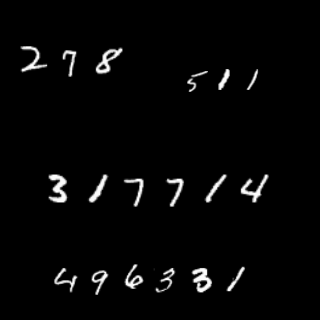 278
511
317714
496331